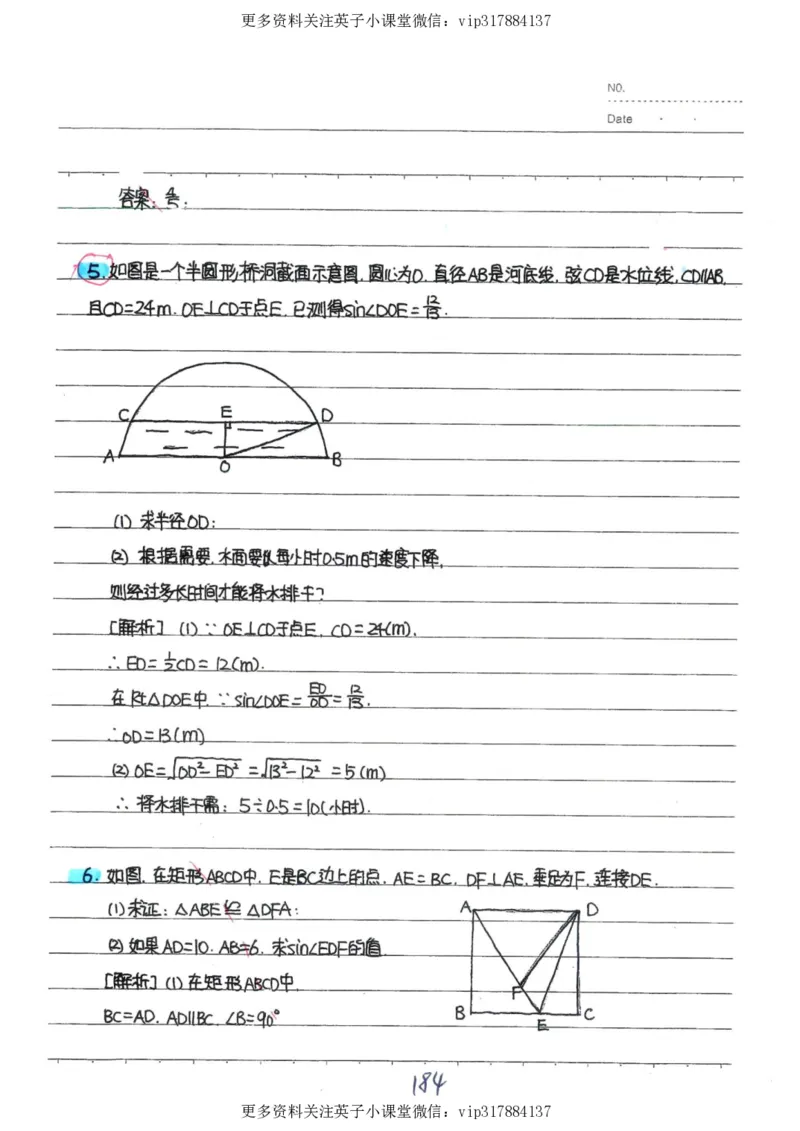 更多资料关注英子小课堂微信：vip317884137
NO.
Date
答案：4/5.
5. 如图是一个半圆形桥洞截面示意图，圆心为O，直径AB是河底线，弦CD是水位线，CD∥AB，
且CD=24m，OE⊥CD于点E，已测得sin∠DOE=12/13.
C E D
A O B
(1) 求半径OD；
(2) 根据需要，水面要以每小时0.5m的速度下降，
则经过多长时间才能将水排干？
[解析] (1) ∵ OE⊥CD于点E，CD=24(m)，
∴ ED=1/2CD=12(m).
在Rt△DOE中，∵ sin∠DOE=ED/OD=12/13，
∴OD=13(m)
(2) OE=√OD²-ED²=√13²-12²=5(m)
∴ 将水排干需：5÷0.5=10(小时).
6. 如图，在矩形ABCD中，E是BC边上的点，AE=BC，DF⊥AE，垂足为F，连接DE.
(1) 求证：△ABE≌△DFA；
(2) 如果AD=10，AB=6，求sin∠EDF的值.
[解析] (1) 在矩形ABCD中，
BC=AD，AD∥BC，∠B=90°
A D
F
B E C
184
更多资料关注英子小课堂微信：vip317884137